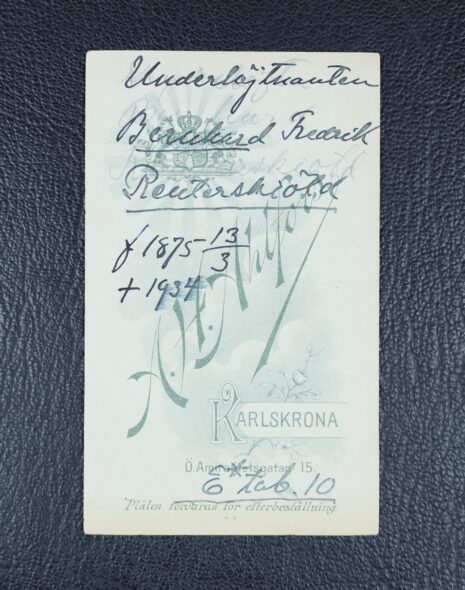 Underlöjtnanten
Bernhard Fredrik
Reuterskiöld
f 1875 13/3
+ 1934
A. H.
KARLSKRONA
Ö. Amiralitetsgatan 15.
tab. 10
Plåten förvaras för efterbeställning.